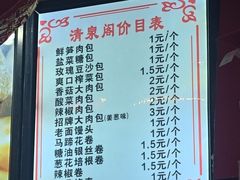 清泉阁价目表
鲜笋肉包 1元/个
盐菜糖包 1元/个
玫瑰豆沙包 1.5元/个
爽口榨菜包 2元/个
香菇大肉包 2元/个
酸菜肉包 2元/个
辣椒肉包 3元/个
招牌大肉包(姜葱味) 1元/个
老面馒头 1元/个
马蹄花卷 1.5元/个
糖油银丝卷 1.5元/个
葱花培根卷 1.5元/个
辣椒卷